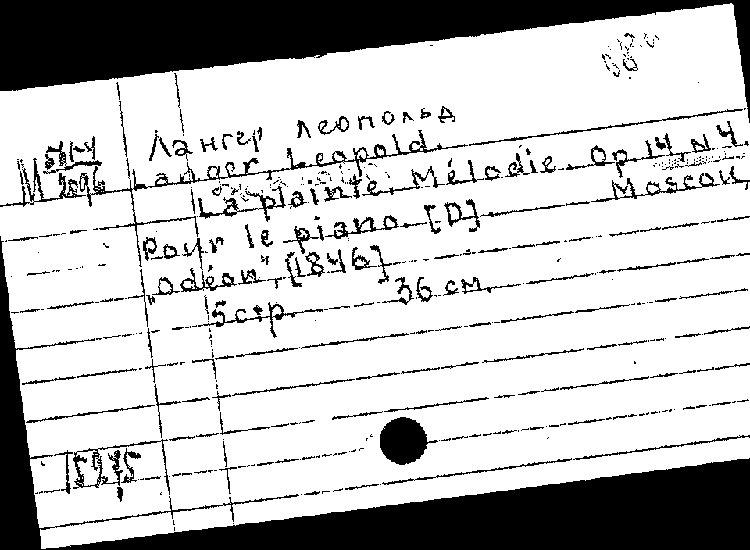 Лангер Леопольд
Langer, Leopold.
La plainte. Mélodie. Op. 14, N 4.
pour le piano. [D]. Moscou,
"Odéon", [1846]
5 стр. 36 см.